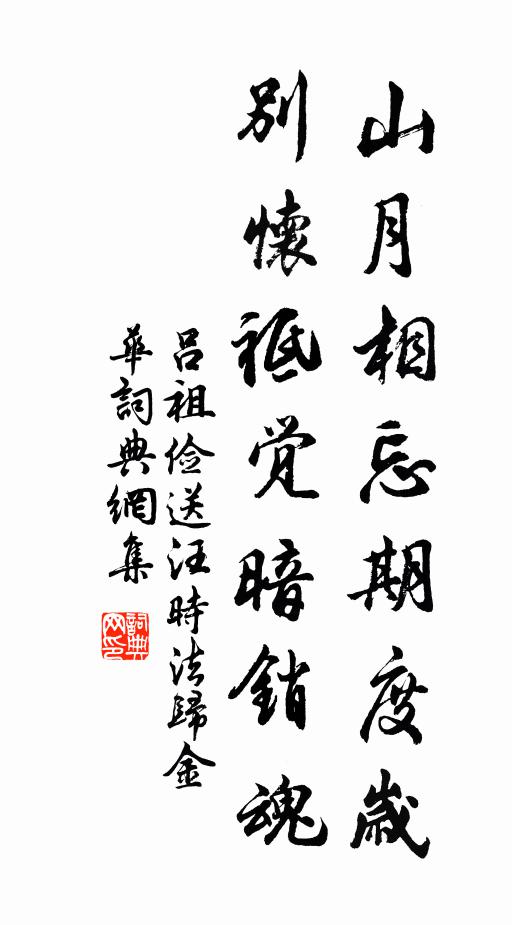 山月相忘期度歲
別懷祗觉暗銷魂
吕祖儉送汪時法歸金
華詞典網集
詞典网印